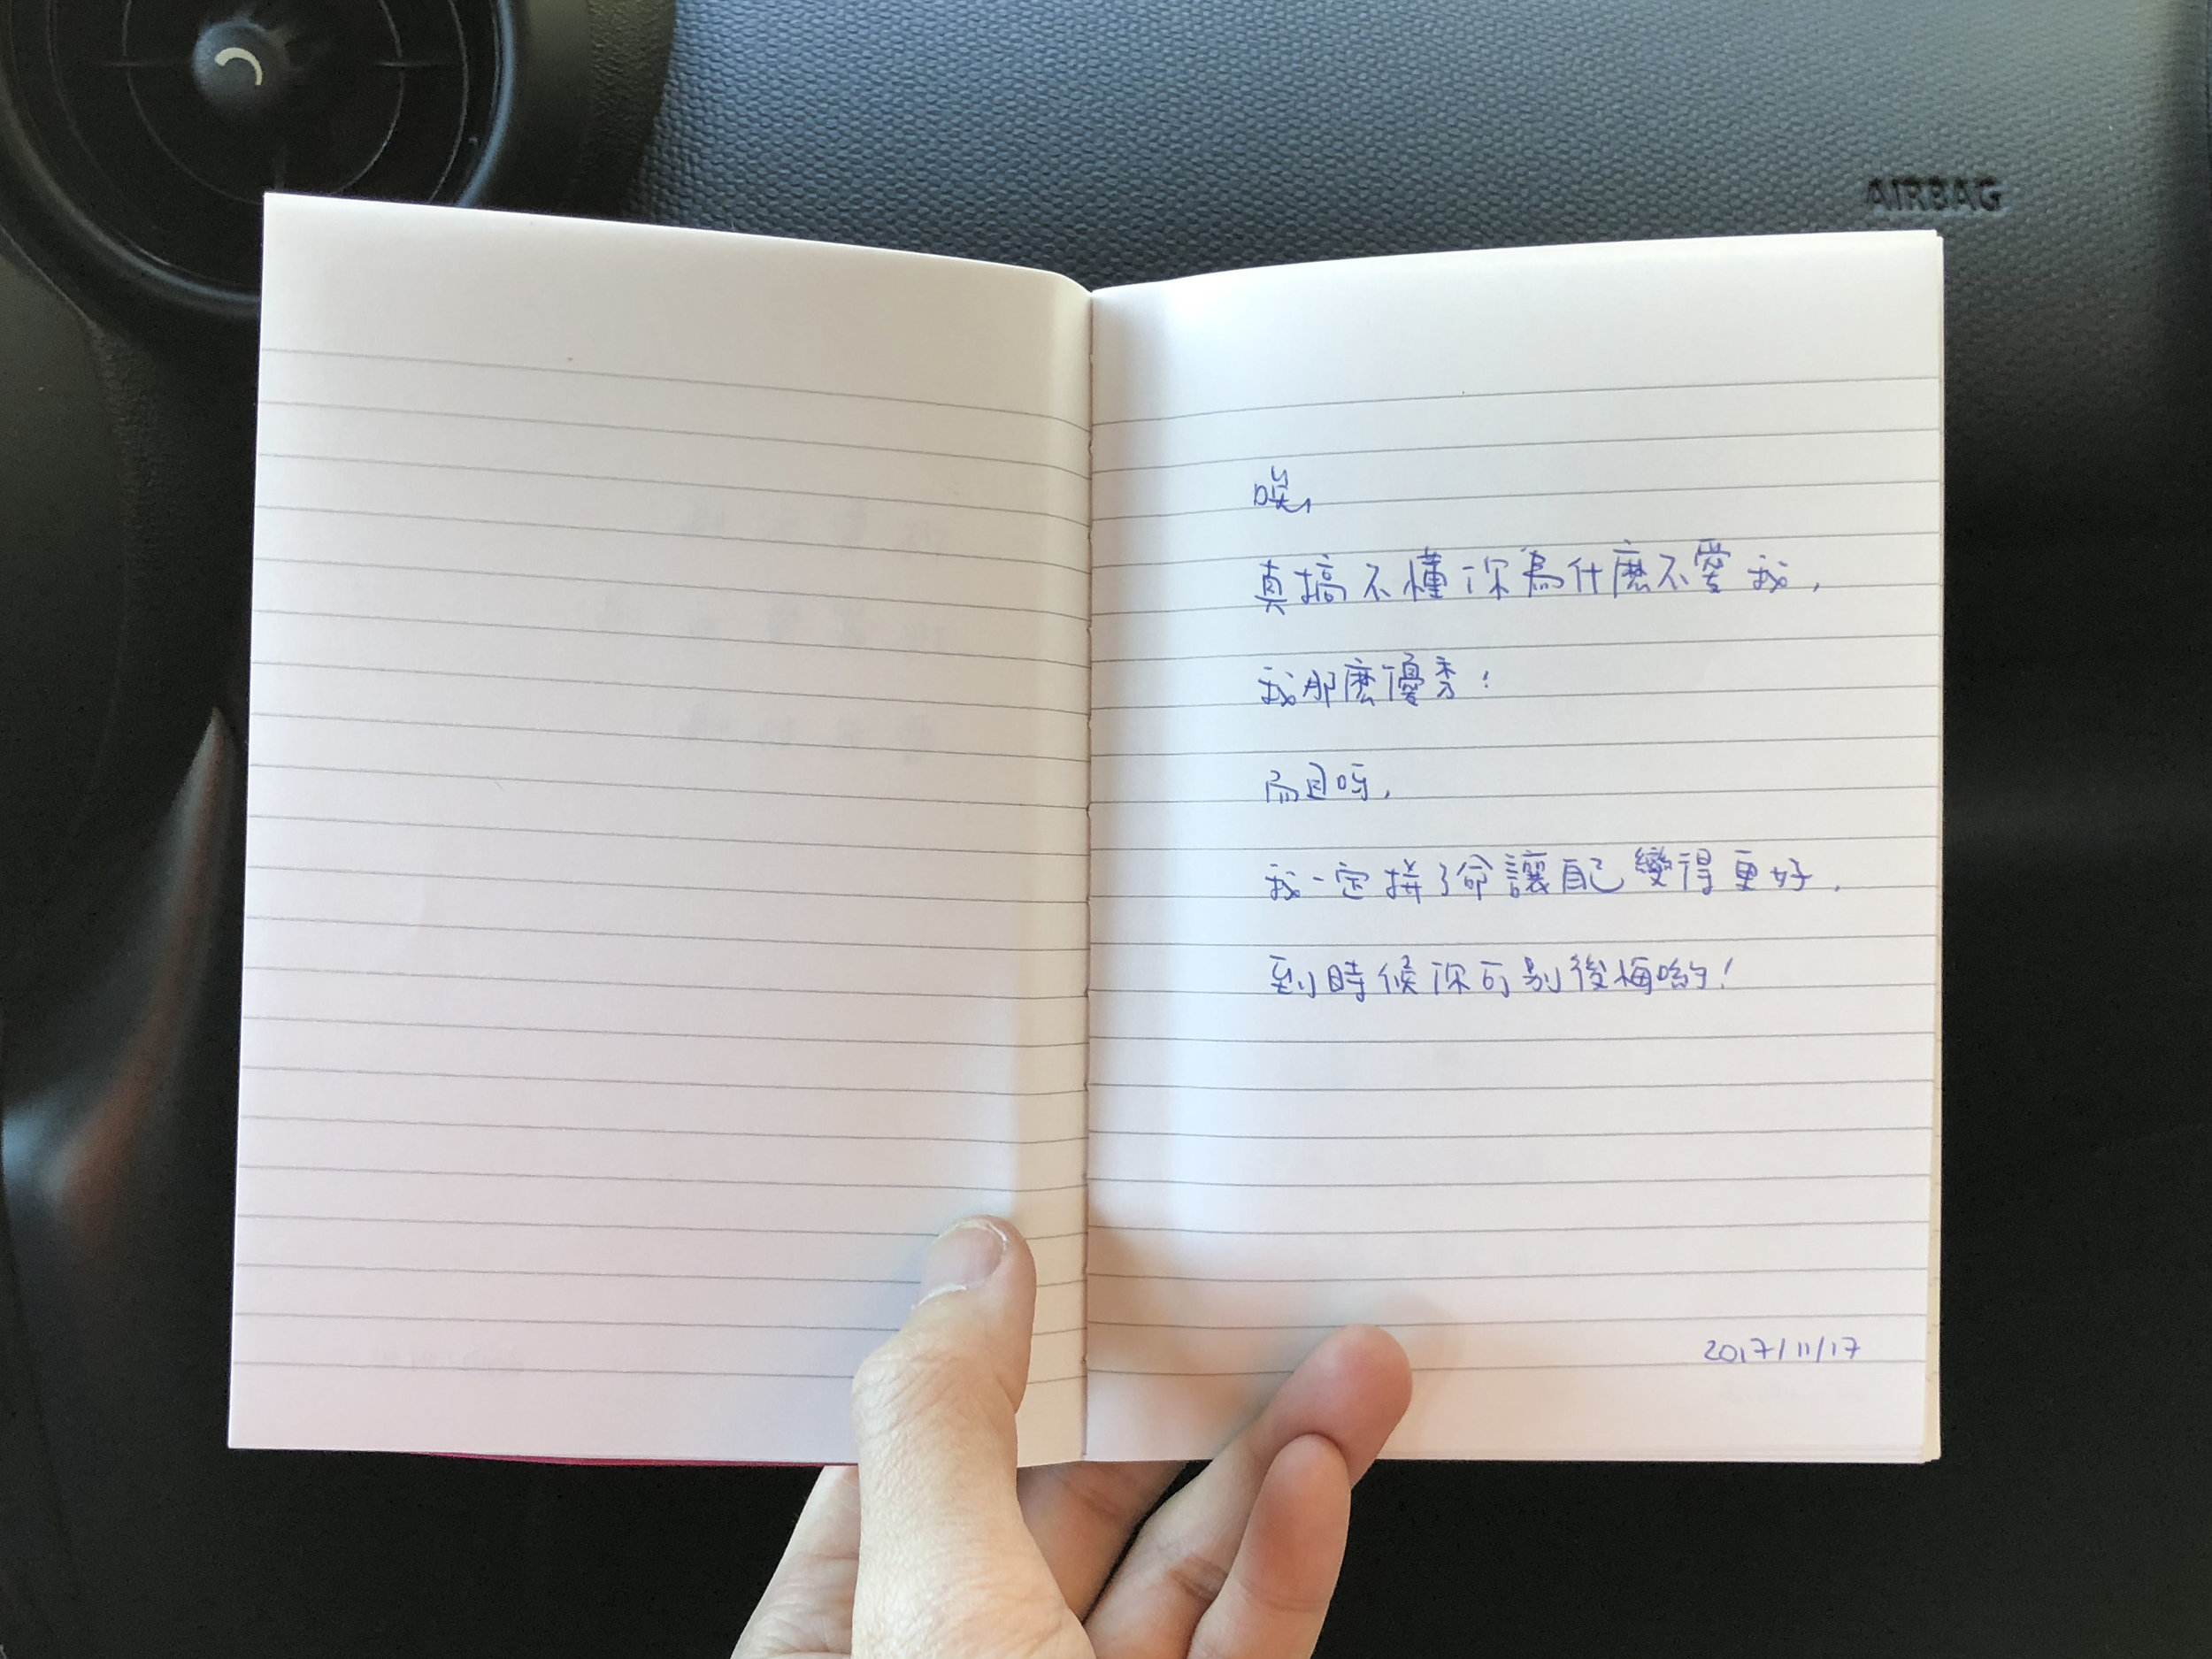 AIRBAG
唉,
真搞不懂你為什麼不愛我,
我那麼優秀!
而且呀,
我一定拼了命讓自己變得更好,
到時候你可別後悔喲!
2017/11/17